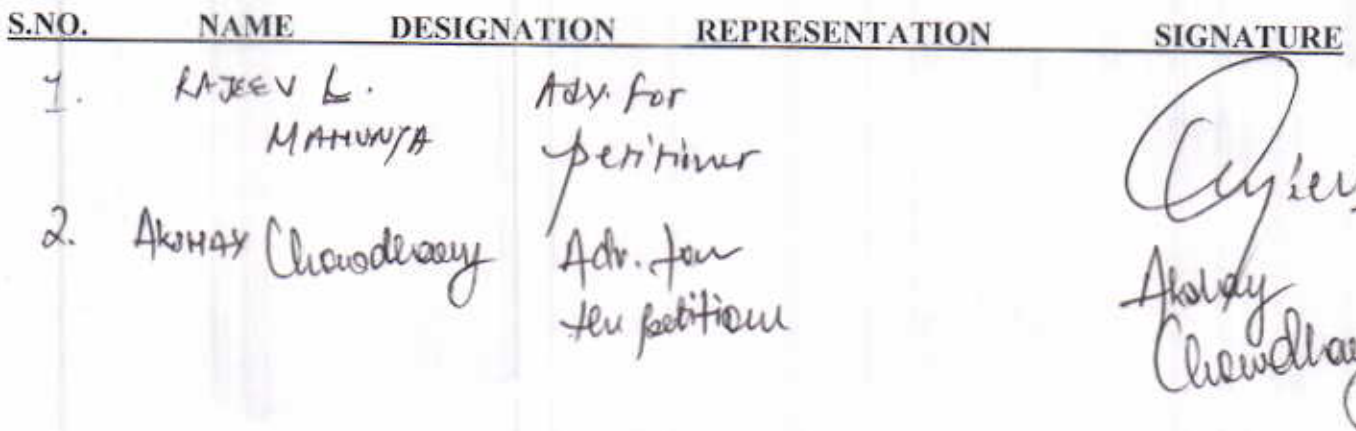 S.NO. NAME DESIGNATION REPRESENTATION SIGNATURE
1. RAJEEV L. Adv. for
MAHUNJA petitioner
2. AKSHAY Chowdhary Adv. for
the petitioner
Akshay